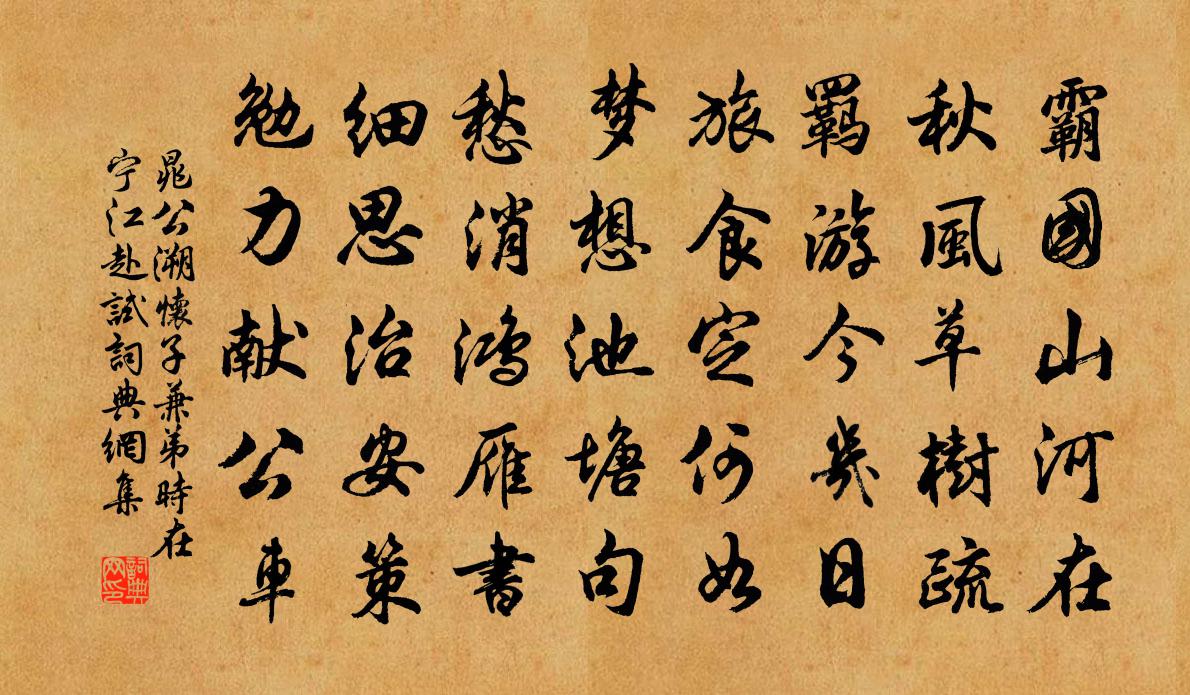 霸國山河在
秋風草樹疏
羁游今幾日
旅食定何如
梦想池塘句
愁消鸿雁書
细思治安策
勉力献公車
晁公溯懷子兼弟時在
宁江赴試詞典網集
詞典网印